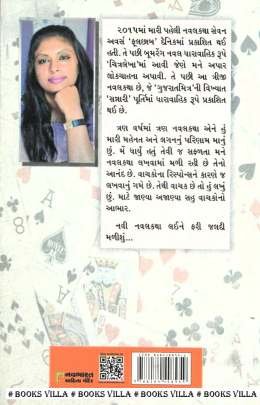 ૨૦૧૫માં મારી પહેલી નવલકથા સેવન
અવર્સ 'ફૂલછાબ' દૈનિકમાં પ્રકાશિત થઈ
છે. તે પછી બૂમરેંગ નવલ ધારાવાહિક રૂપે
'ચિત્રલેખા'માં આવી જેણે મને અપાર
લોકચાહના અપાવી. તે પછી આ ત્રીજી
નવલકથા છે, જે 'ગુજરાતમિત્ર'ની વિખ્યાત
'સન્નારી' પૂર્તિમાં ધારાવાહિક રૂપે પ્રકાશિત
થઈ છે.
ત્રણ વર્ષમાં ત્રણ નવલકથા એને હું
મારી મહેનત અને લગનનું પરિણામ માનું
છું. મેં ધાર્યું હતું તેવી જ સફળતા મને
નવલકથા લખવામાં મળી રહી છે તેનો
આનંદ છે. વાચકોના રિસ્પોન્સને કારણે જ
લખવાનું ગમે છે. તેવી વાચક છે તો હું લખું
છું. માટે જાણ્યા અજાણ્યા સહુ વાચકોનો
આભાર.
નવી નવલકથા લઈને ફરી જલદી
મળીશું...
નવભારત
સાહિત્ય મંદિર
# BOOKS VILLA # BOOKS VILLA # BOOKS VILLA #